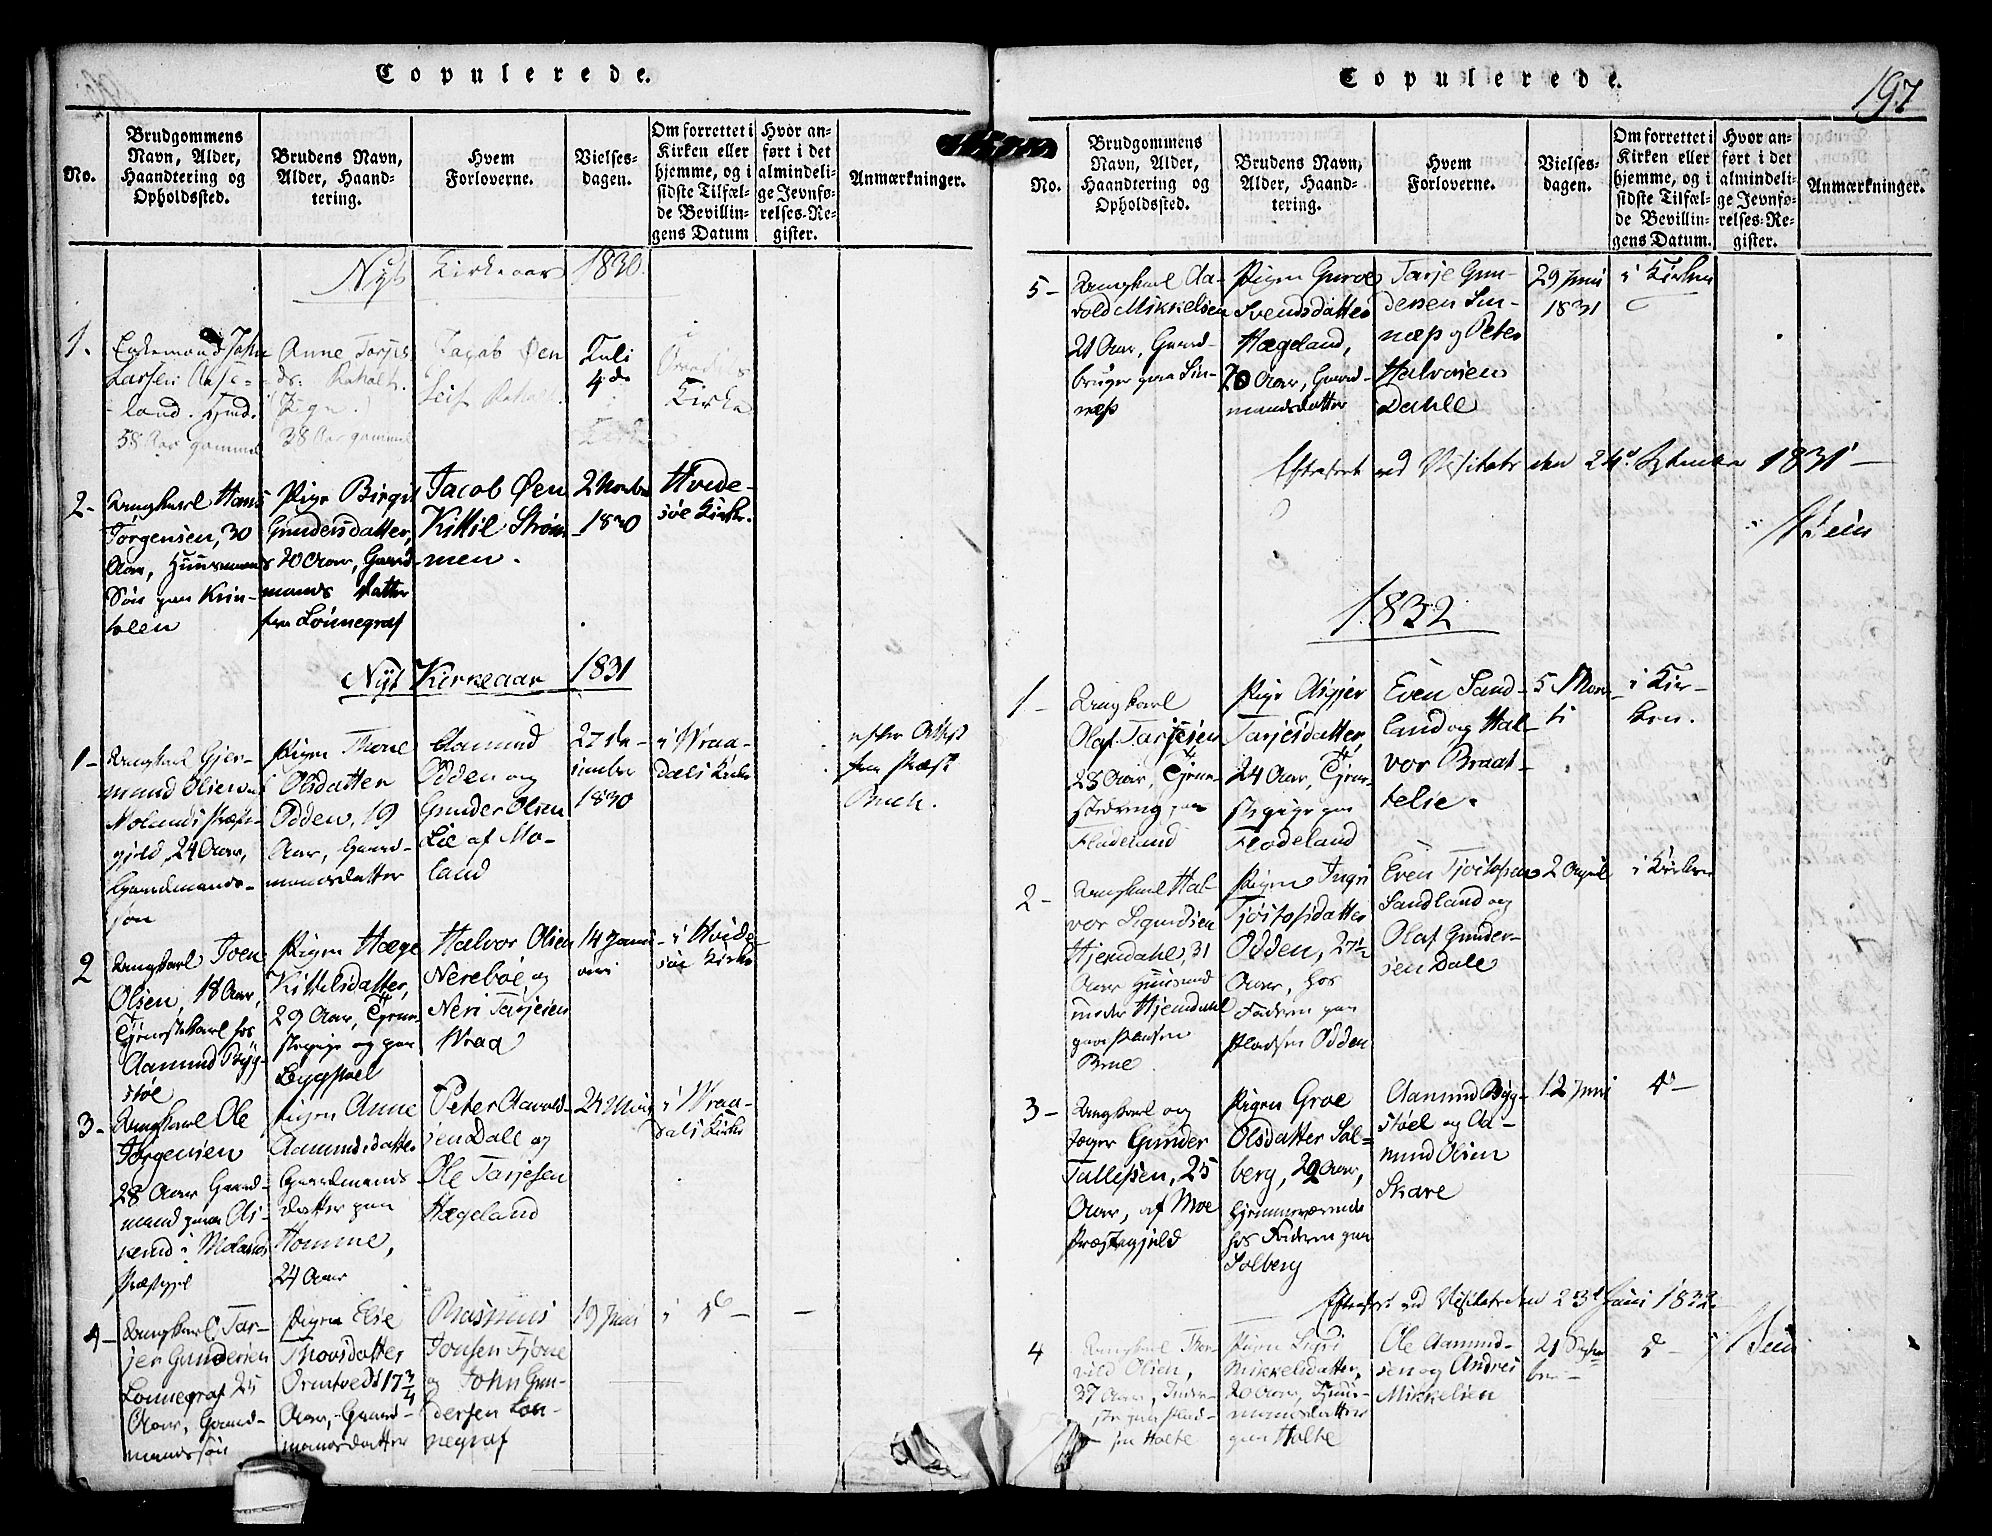 Copulerede.
No.
Brudgommens
Navn, Alder,
Haandtering og
Opholdssted.
Brudens Navn,
Alder, Haand-
tering.
Hvem
Forloverne.
Vielses-
dagen.
Om forrettet i
Kirken eller
hjemme, og i
sidste Tilfæl-
de Bevillin-
gens Datum
Hvor an-
ført i det
almindeli-
ge Jevnfø-
relses-Re-
gister.
Anmærkninger.
Nyt Kirkeaar 1830.
1.
Enkemand John
Larsen
land.
58 Aar gammel
Anne Tarjes
ds: Raholt.
Pige.
38 Aar gammel
Jacob Øen
Leif Raholt.
Juli
4de
i
Vraadals
Kirke
2-
Ungkarl Hans
Jørgensen, 30
Aar, Huusmands
Søn paa
Pige Birgit
Gundersdatter,
20 Aar, Gaard-
mands Datter
fra Lønnegraf
Jacob Øen
Kittil Strøm-
men.
2 Novbr
1830
Hvide-
søe Kirke.
Nyt Kirkeaar 1831
1-
Ungkarl Gjer-
mund Olsen
Molands Præste-
gjeld, 24 Aar,
Gaardmands-
søn
Pigen Thone
Olsdatter
Odden, 19
Aar, Gaard-
mandsdatter
Aamund
Odden og
Gunder Olsen
Lie af Mo-
land
27 De-
cember
1830
i Vraa-
dals Kirke
efter Attest
fra Præst
Buch.
2
Ungkarl Iven
Olsen, 18 Aar,
Tjenestekarl hos
Aamund Bygg-
støe
Pigen Hæge
Kittelsdatter,
29 Aar, Tjene-
stepige og paa
Bygstøel
Halvor Olsen
Nerebøe, og
Neri Tarjesen
Vraa
14 Janu-
ari
i Hvide-
søe Kirke
3-
Ungkarl Ole
Jørgensen
28 Aar Gaard-
mand paa
i Molands
Præstgjel
Pigen Anne
Aamundsdatter
Gaardmands
datter paa
Homme,
24 Aar
Peter Aavold-
sen Dale og
Ole Tarjesen
Hægeland
24 Marts
i Vraa-
dals Kirke
4-
Ungkarl Tar-
jer Gundersen
Lønnegraf 25
Aar, Gaard-
mandssøn
Pigen Else
Thovsdatter
Ormtvedt 17 3/4
Aar, Gaard-
mandsdatter
Rasmus
Jonsen Fjone
og John Gun-
dersen Løn-
negraf
19 Juni
i do -
Copulerede.
197
No.
Brudgommens
Navn, Alder,
Haandtering og
Opholdssted.
Brudens Navn,
Alder, Haand-
tering.
Hvem
Forloverne.
Vielses-
dagen.
Om forrettet i
Kirken eller
hjemme, og i
sidste Tilfæl-
de Bevillin-
gens Datum.
Hvor an-
ført i det
almindeli-
ge Jevnfø-
relses-Re-
gister.
Anmærkninger.
5-
Ungkarl Aa-
vold Mikkelsen
21 Aar, Gaard-
bruger paa Sin-
næs
Pigen Guroe
Svendsdatter
Hægeland,
20 Aar, Gaard-
mandsdatter
Tarje Gun-
dersen Sin-
næs og Peter
Halvorsen
Dahle
29 Juni
1831
i Kirken
Efterseet ved Visitats den 24de September 1831 -
1832
1-
Ungkarl
Olaf Tarjesen
25 Aar, Tjene-
stedreng, paa
Fladeland
Pige Asgjer
Tarjesdatter,
24 Aar, Tjene-
stepige paa
Fladeland
Even Sand-
land og Hal-
vor Braat-
telie.
5 Mar-
ti
i Kir-
ken.
2-
Ungkarl Hal-
vor Sigundsen
Hjemdahl, 31
Aar Huusmand
paa Pladsen
Pigen Ingri
Tjostofsdatter
Odden, 27 1/2
Aar, hos
Faderen paa
Pladsen Odden
Even Tjostofsen
Sandland og
Olaf Gunder-
sen Dale
2 April
i Kirken
3-
Ungkarl og
Jæger Gunder
Tallefsen, 25
Aar, af Moe
Præstegjeld
Pigen Groe
Olsdatter Sol-
berg, 22 Aar,
hjemmeværende
hos Faderen paa
Solberg
Aamund Byg-
støel og Aa-
mund Olsen
Skare
12 Juni
do -
Efterseet ved Visitats den 23de Juni 1832.
4
Ungkarl Thor-
vild Olsen,
37 Aar, Inder-
ste paa Plad-
sen Holte
Pigen Sigri
Mikkelsdatter,
20 Aar, Huus-
mandsdatter
paa Holte
Ole Aamund-
sen og Andres
Mikkelsen
21 Septem-
ber
do -